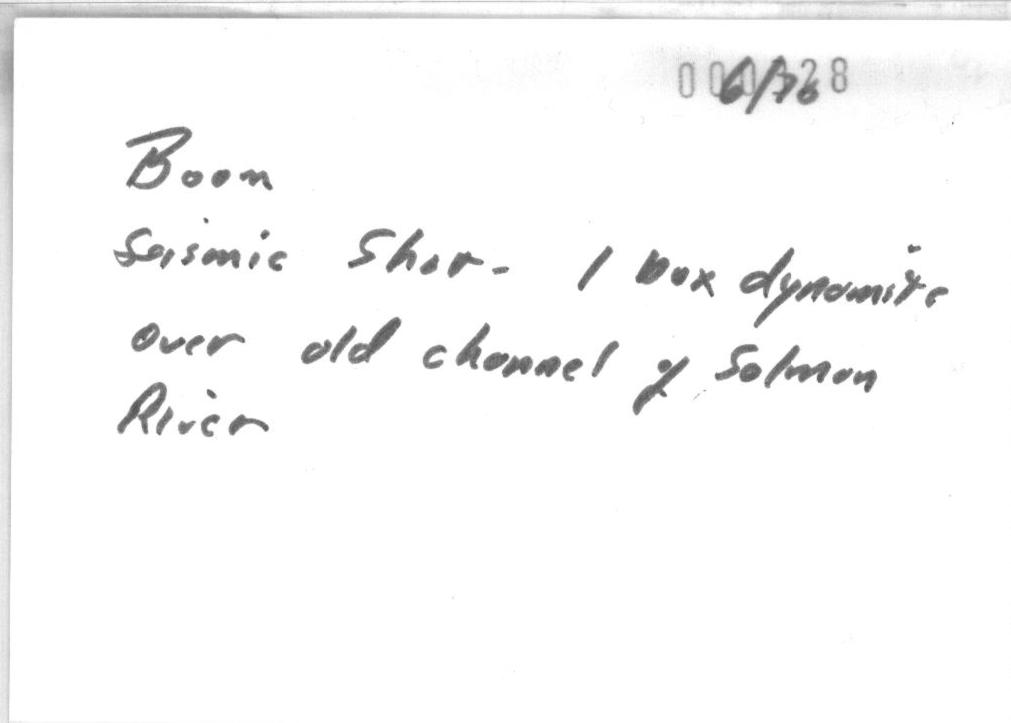 6/76
Boom
Seismic Shot - 1 box dynamite
over old channel of Salmon
River